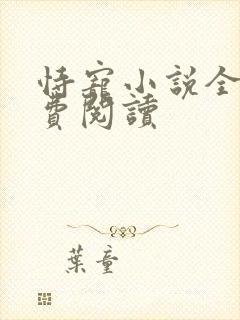 恃寵小説全
費閱讀
葉童